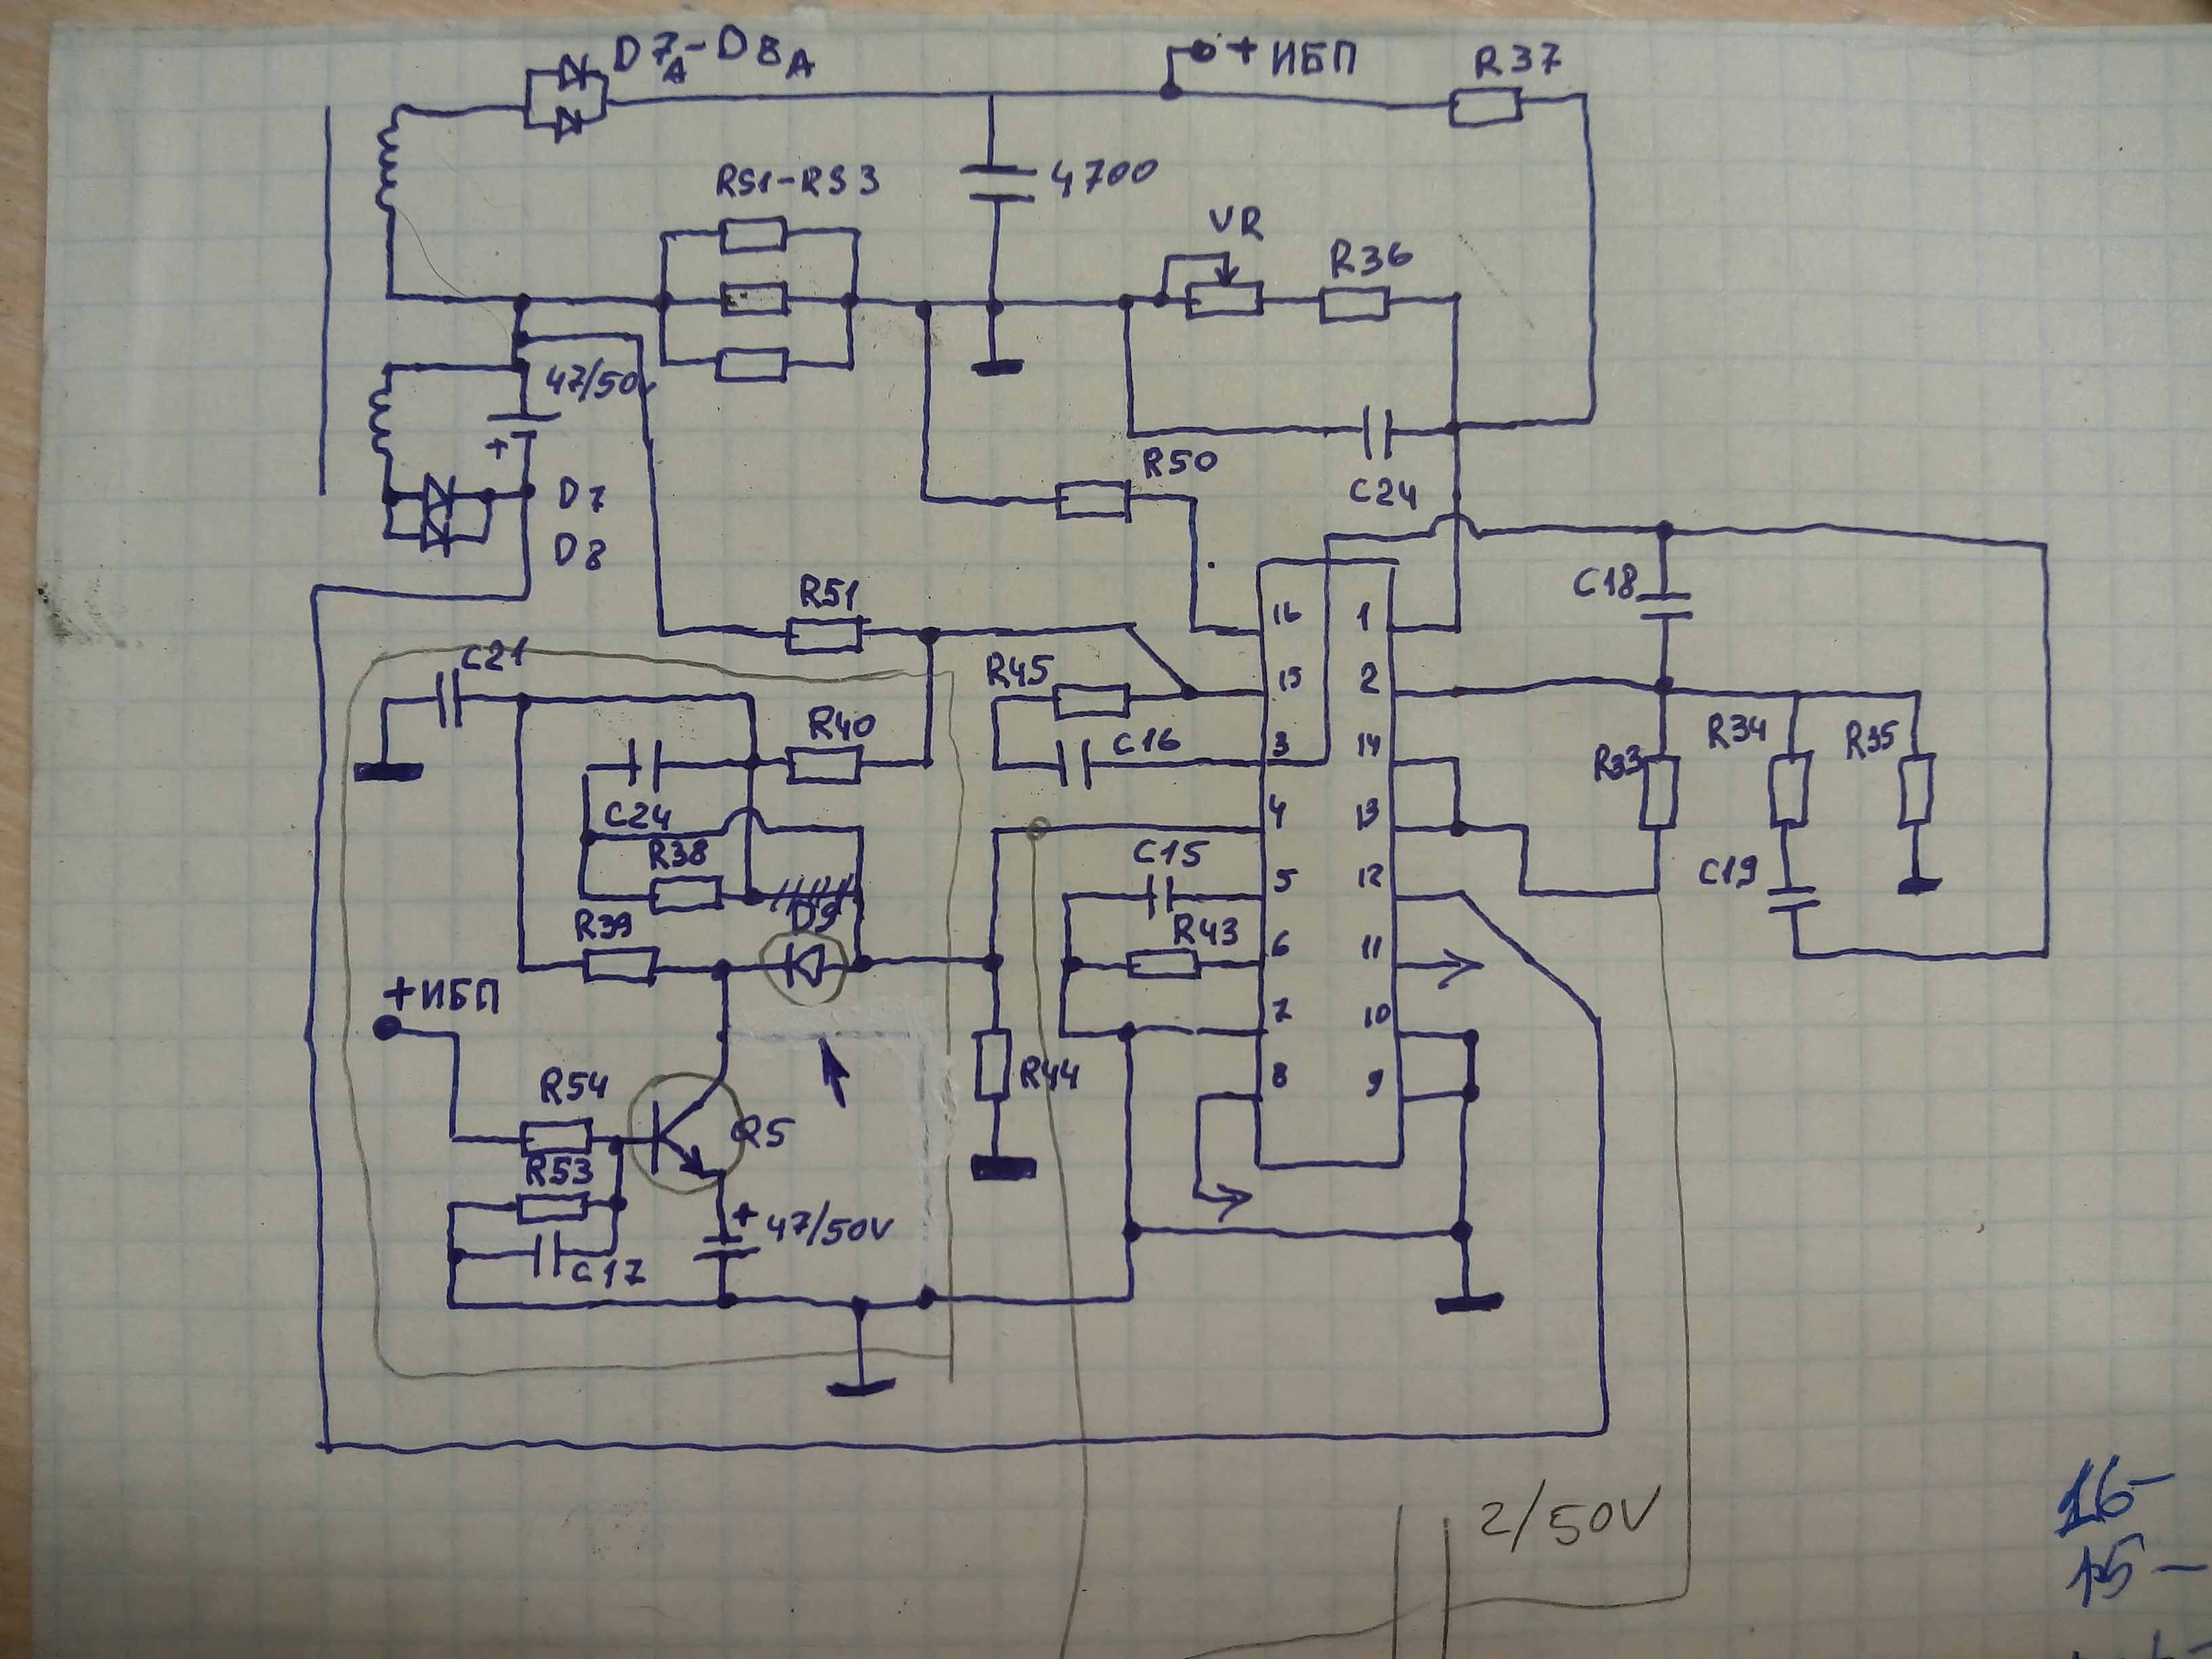 D7A-D8A
+ИБП
R37
RS1-RS3
4700
VR
R36
47/50
+
R50
C24
D7
D8
C18
R51
16 1
C21
R45
15 2
R40
C16
3 14
R33
R34
R35
C24
4 13
R38
C15
5 12
C19
D9
R39
R43
6 11
+ИБП
7 10
R54
R44
8 9
R5
R53
+
47/50V
C17
2/50V
16-
15-